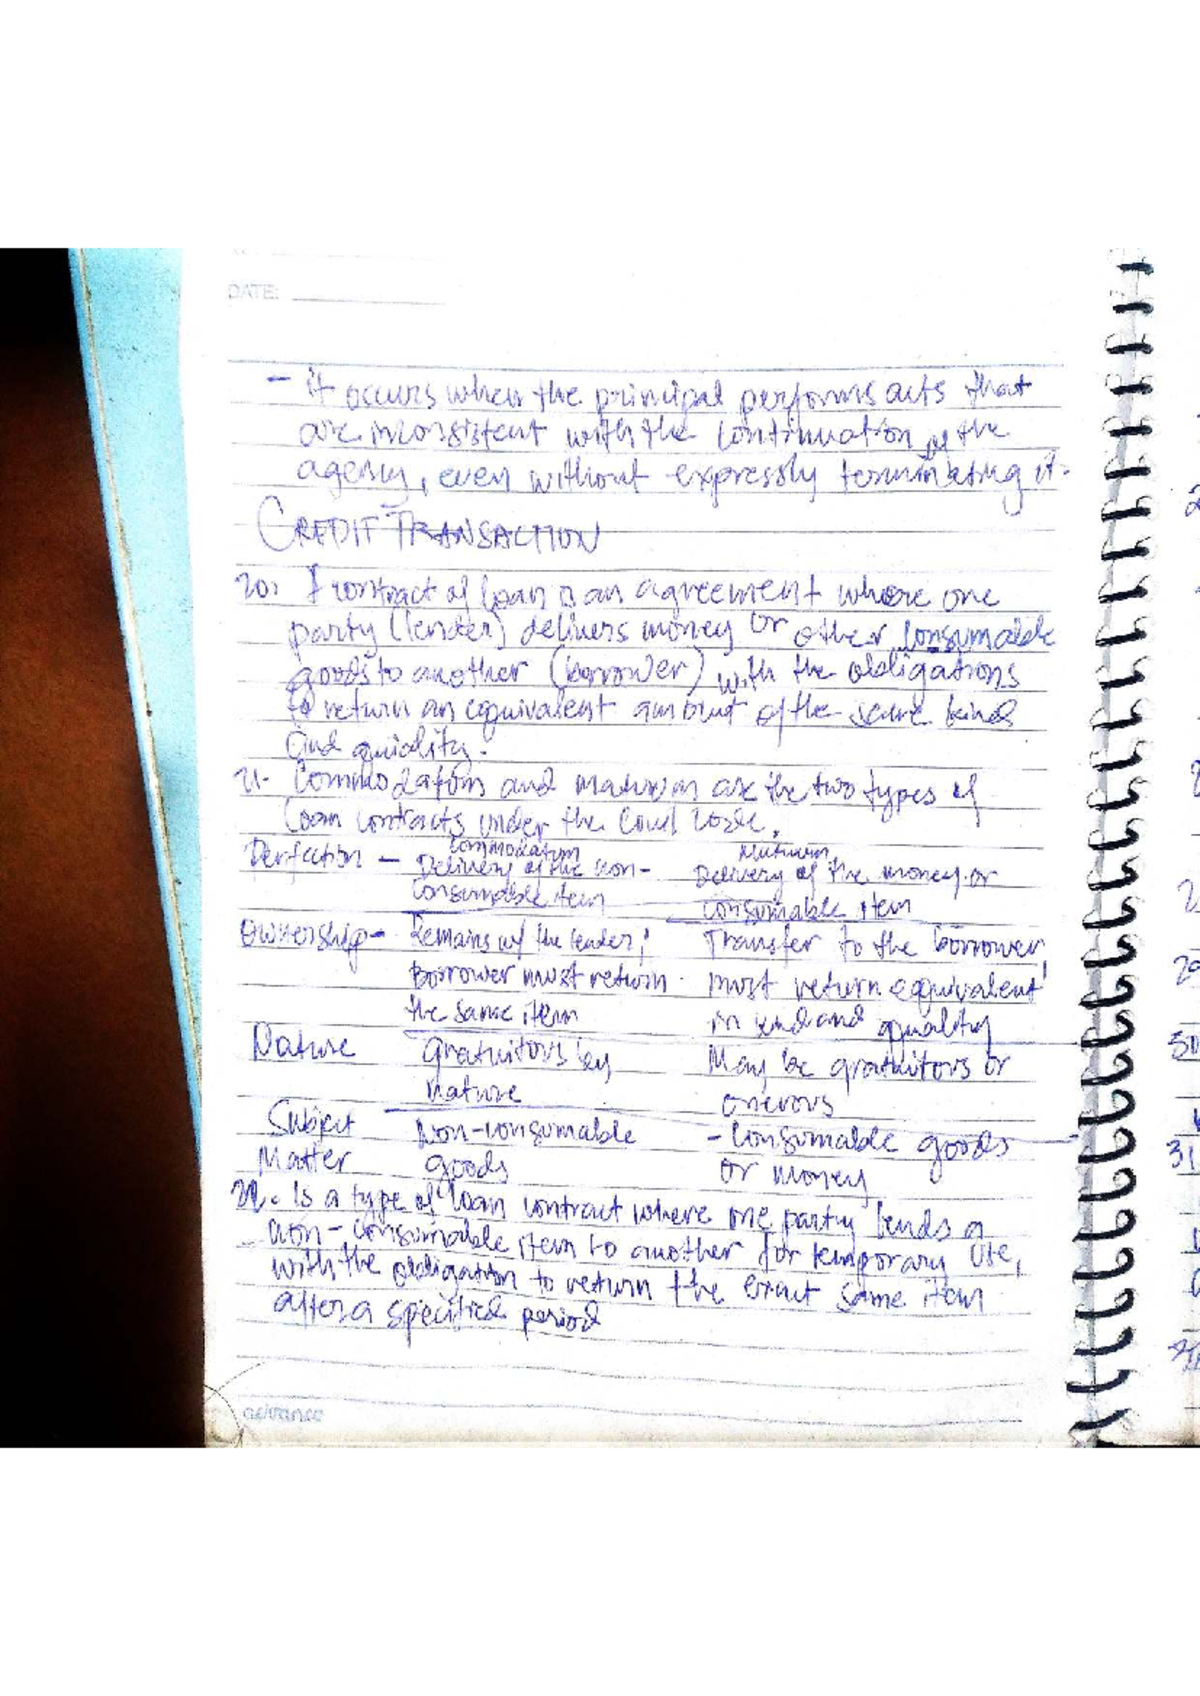 DATE:
- it occurs when the principal performs acts that
are inconsistent with the continuation of the
agency, even without expressly terminating it.
CREDIT TRANSACTION
20. A contract of loan is an agreement where one
party (lender) delivers money or other consumable
goods to another (borrower) with the obligations
to return an equivalent amount of the same kind
and quiality.
21. Commodatum and mutuum are the two types of
loan contracts under the Civil Code.
Commodatum Mutuum
Perfection - Delivery of the non- Delivery of the money or
consumable item consumable item
Ownership - Remains w/ the lender; Transfer to the borrower,
Borrower must return must return equivalent
the same item in kind and quality
Nature gratuitous by May be gratuitous or
nature onerous
Subject Non-consumable - Consumable goods
Matter goods or money
22. Is a type of loan contract where one party lends a
non-consumable item to another for temporary use,
with the obligation to return the exact same item
after a specified period
advance
31